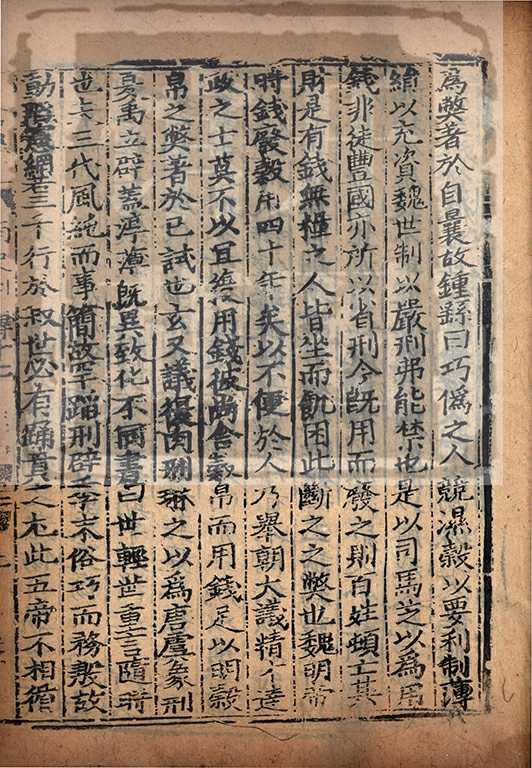 爲獘著於自曩故鍾繇曰巧僞之人競濕穀以要利制薄
絹以充資魏世制以嚴刑弗能禁也是以司馬芝以爲用
錢非徒豐國亦所以省刑今旣用而廢之則百姓頓亡其
財是有錢無糧之人皆坐而飢困此斷之之獘也魏明帝
時錢廢穀用四十年矣以不便於人乃舉朝大議精才達
政之士莫不以宜復用錢彼尚舍穀帛而用錢足以明穀
帛之獘著於已試也玄又議復肉刑琳之以爲唐虞象刑
夏禹立辟蓋淳薄旣異致化不同書曰世輕世重言隨時
也夫三代風純而事簡故罕蹈刑辟季末俗巧而務殷故
動陷憲網若三千行於叔世必有踊貴之尤此五帝不相循